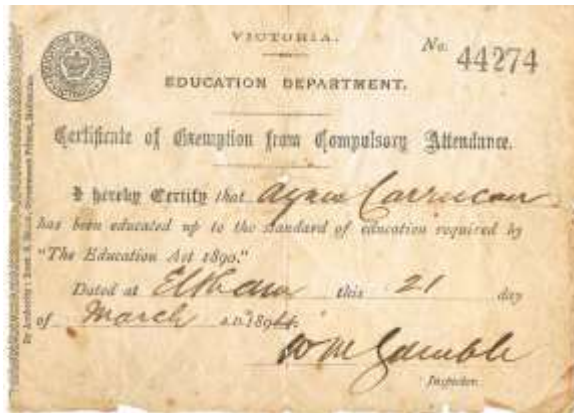 VICTORIA.
No. 44274
EDUCATION DEPARTMENT.
Certificate of Exemption from Compulsory Attendance.
I hereby Certify that Agnes
has been educated up to the standard of education required by
"The Education Act 1890."
Dated at Eltham this 21 day
of March A.D. 1894.
W M Gamble
Inspector.